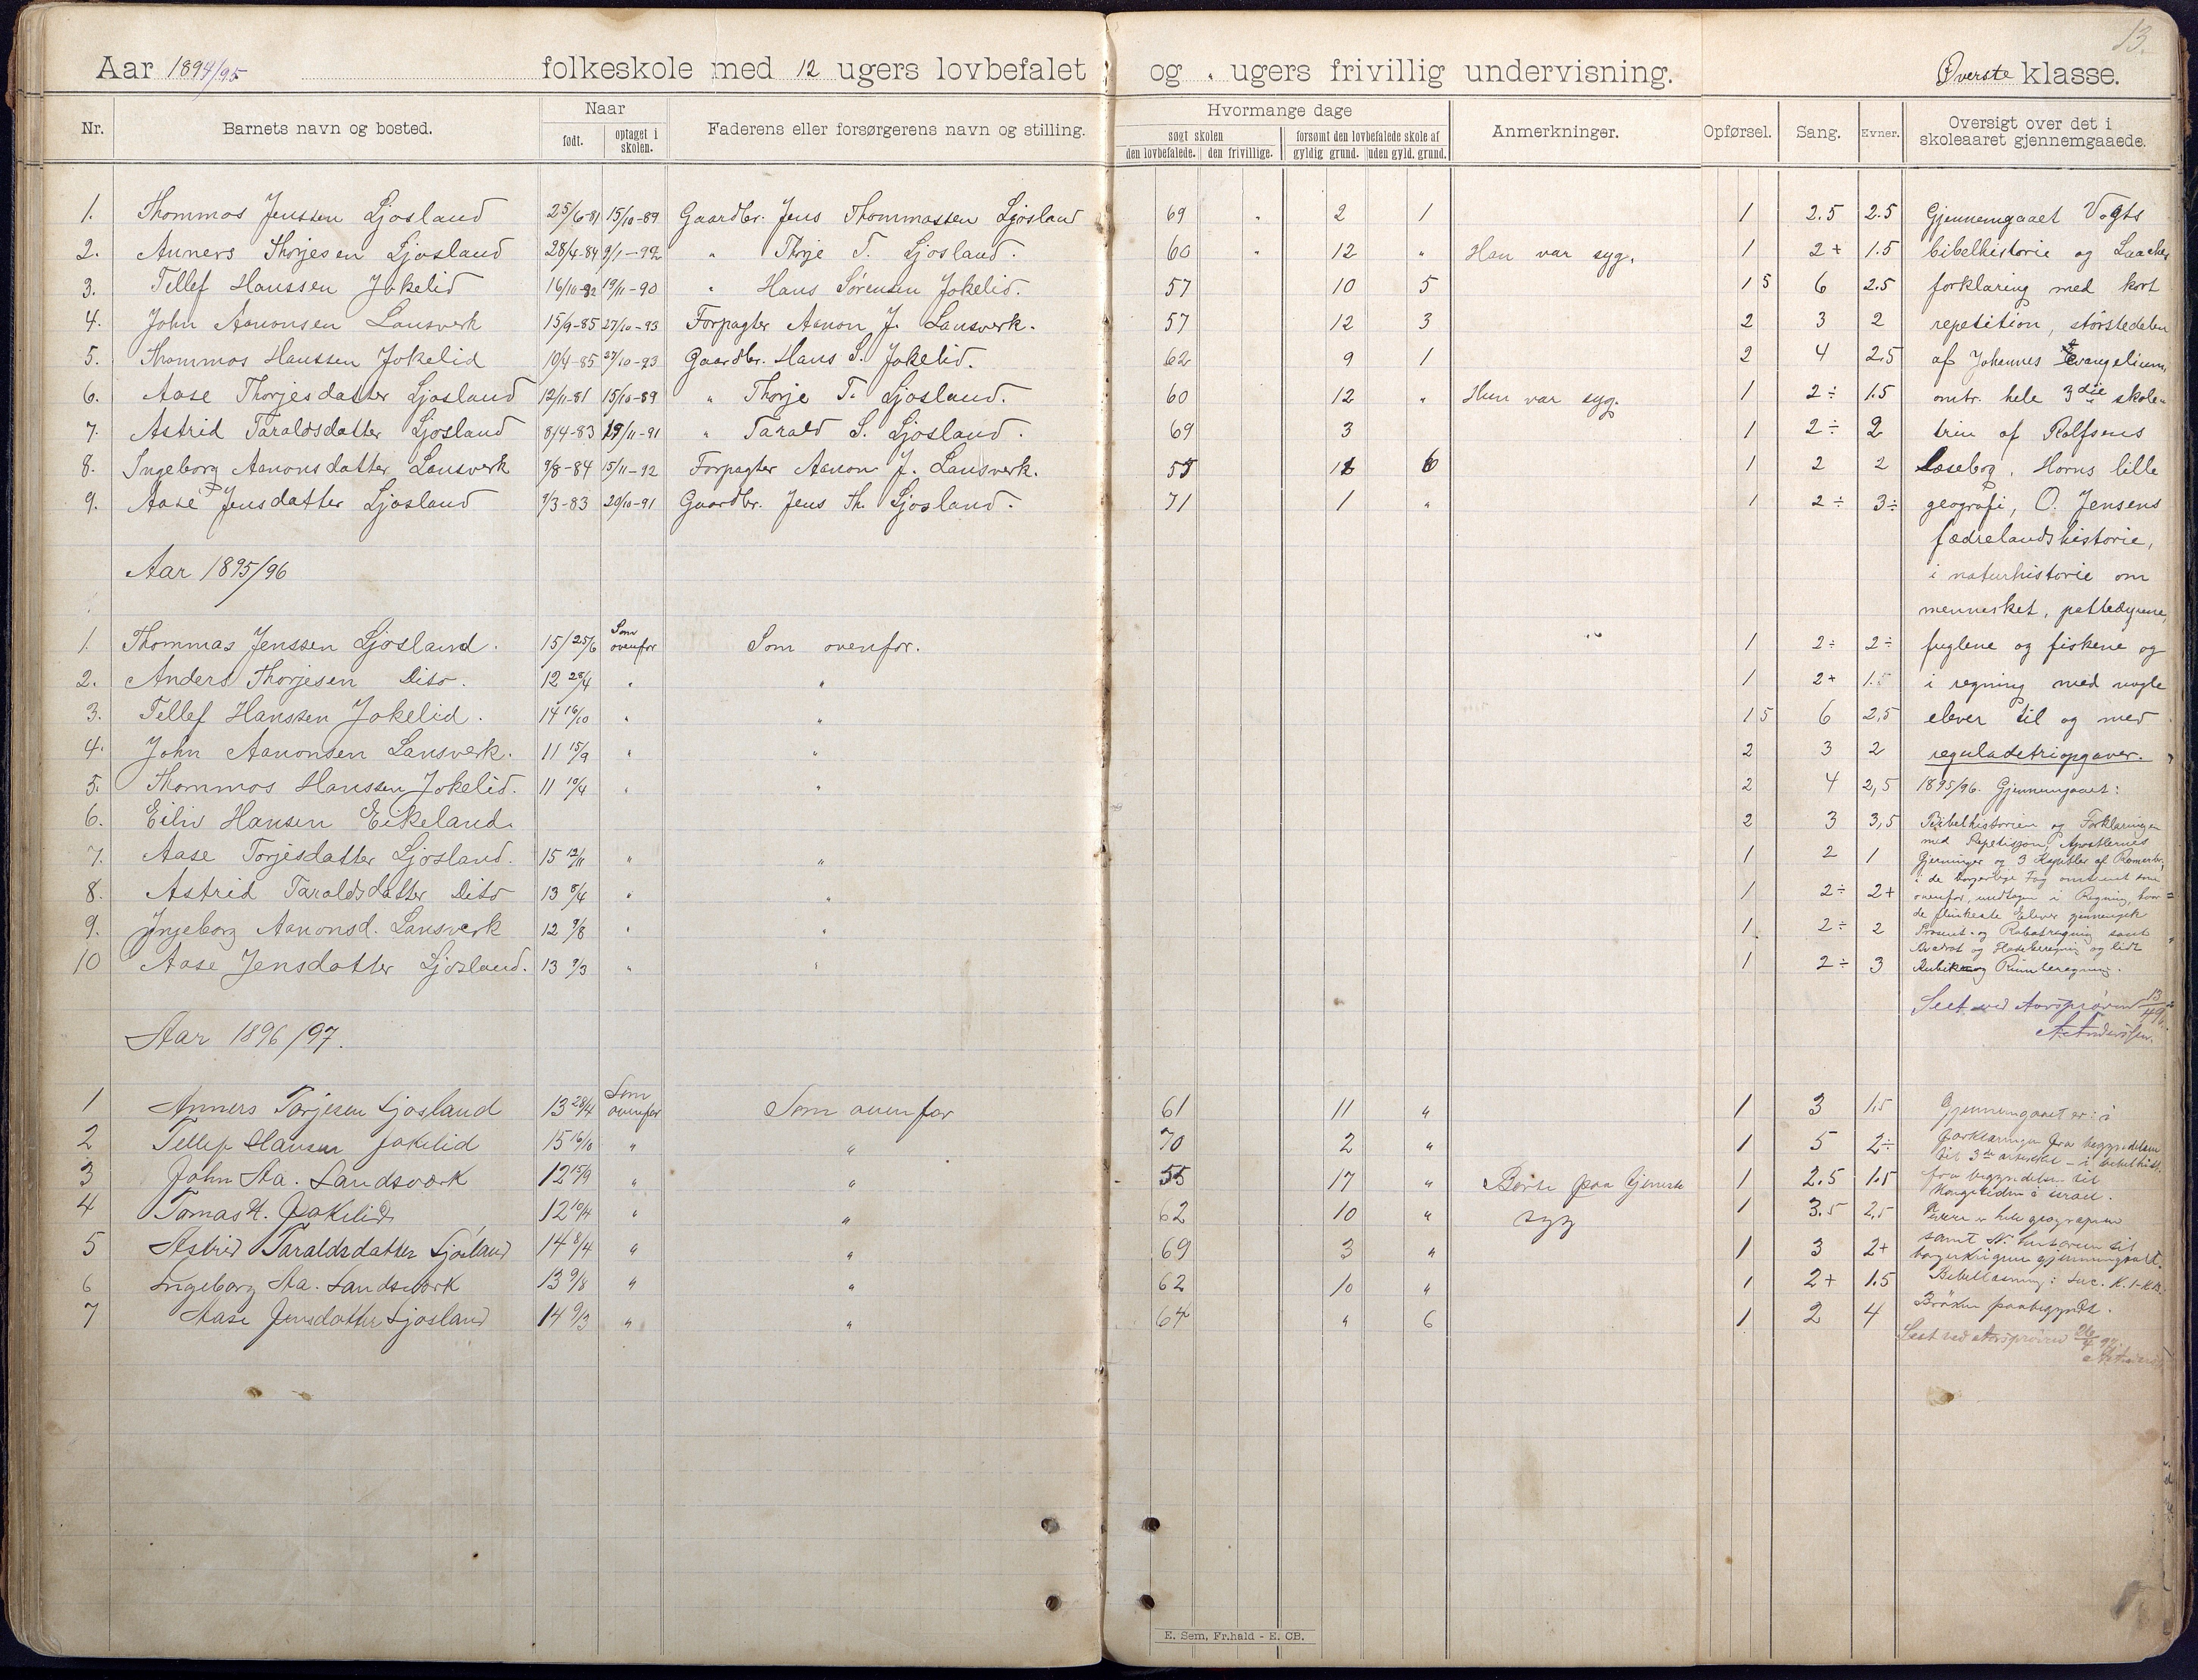 13.
Aar 1894/95 folkeskole med 12 ugers lovbefalet og " ugers frivillig undervisning. Øverste klasse.
Nr. Barnets navn og bosted. Naar Faderens eller forsørgerens navn og stilling. Hvormange dage Anmerkninger. Opførsel. Sang. Evner. Oversigt over det i skoleaaret gjennemgaaede.
født. optaget i skolen. søgt skolen forsømt den lovbefalede skole af
den lovbefalede. den frivillige. gyldig grund. uden gyld. grund.
1. Thommas Jenssen Ljosland 25/6-81 15/10-89 Gaardbr. Jens Thommassen Ljosland 69 " 2 1 1 2.5 2.5 Gjennemgaaet Vogts
2. Anners Thorjesen Ljosland 28/4-84 9/1-92 " Thorje T. Ljosland. 60 " 12 " Han var syg. 1 2+ 1.5 bibelhistorie og Laaches
3. Tellef Hanssen Jokelid 16/10-82 19/11-90 " Hans Sørensen Jokelid. 57 10 5 1 5 6 2.5 forklaring med kort
4. John Aanonsen Lansverk 15/9-85 27/10-93 Forpagter Aanon J. Lansverk. 57 12 3 2 3 2 repetition, størstedelen
5. Thommas Hanssen Jokelid 10/4-85 27/10-93 Gaardbr. Hans S. Jokelid. 62 9 1 2 4 2.5 af Johannes Evangelium,
6. Aase Thorjesdatter Ljosland 12/11-81 15/10-89 " Thorje T. Ljosland. 60 12 " Hun var syg. 1 2÷ 1.5 omtr. hele 3die skole-
7. Astrid Taraldsdatter Ljosland 8/4-83 19/11-91 " Tarald S. Ljosland. 69 3 1 2÷ 2 trin af Rolfsens
8. Ingeborg Aanonsdatter Lansverk 9/8-84 15/11-92 Forpagter Aanon J. Lansverk. 55 6 1 2 2 Læsebog, Horns lille
9. Aase Jensdatter Ljosland 9/3-83 20/10-91 Gaardbr. Jens Th. Ljosland. 71 1 " 1 2÷ 3÷ geografi, O. Jensens
fædrelandshistorie,
Aar 1895/96 i naturhistorie om
mennesket, pattedyrene,
1. Thommas Jenssen Ljosland. 15/25/6 Som ovenfor Som ovenfor. 1 2÷ 2÷ fuglene og fiskene og
2. Anders Thorjesen Dito. 12 28/4 " " 1 2+ 1.5 i regning med nogle
3. Tellef Hanssen Jokelid. 14 16/10 " " 1 5 6 2,5 elever til og med
4. John Aanonsen Lansverk. 11 15/9 " " 2 3 2 reguladetriopgaver.
5. Thommas Hanssen Jokelid. 11 10/4 " " 2 4 2,5 1895/96. Gjennemgaaet:
6. Eiliv Hansen Eikeland. 2 3 3,5 Bibelhistorien og Forklaringen
med Repetisjon, Apostlernes
7. Aase Torjesdatter Ljosland. 15 12/11 " " 1 2 1 Gjerninger og 3 Kapitler af Romerbr,
i de borgerlige Fag omtrent som
8. Astrid Taraldsdatter Dito 13 8/4 " " 1 2÷ 2+ ovenfor, undtagen i Regning, hvor
de flinkeste Elever gjennemgik
9. Ingeborg Aanonsd. Lansverk 12 9/8 " " 1. 2÷ 2 Prosent- og Rabatregning samt
Kvadrat og Fladeberegning og lidt
10 Aase Jensdatter Ljosland. 13 9/3 " " 1 2÷ 3 Kubik og Rumberegning.
Seet ved Aarsprøven 13/4 96
A. Anderssen.
Aar 1896/97.
1 Anners Torjesen Ljosland 13 28/4 Som ovenfor Som ovenfor 61 11 " 1 3 1.5 Gjennemgaaet er: i
2 Tellef Hansen Jokelid 15 16/10 " " 70 2 " 1 5 2÷ forklaringen fra begyndelsen
til 3de artikkel - i bibelhist.
3 John Aa. Landsværk 12 15/9 " " 55 17 " Borte paa tjeneste 1 2.5 1.5 fra begyndelsen til
Kongetiden i Israel.
4 Tomas H. Jokelid 12 10/4 " " 62 10 " syg 1 3.5 2,5 hele geografien
5 Astrid Taraldsdatter Ljosland 14 8/4 " " 69 3 " 1 3 2+ samt N. historien til
borgerkrigene gjennemgaaet.
6 Ingeborg Aa. Landsværk 13 9/8 " " 62 10 " 1 2+ 1.5 Bibellæsning: Luc. K. 1-
7 Aase Jensdatter Ljosland 14 9/3 " " 64 " 6 1 2 4 Brøken paabegyndt.
Seet ved Aarsprøven 26/4 97.
E. Sem, Fr.hald - E. CB.